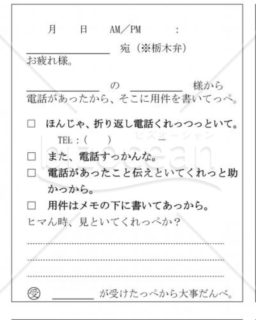 月　　日　　AM／PM　　：
＿＿＿＿＿＿ 宛（※栃木弁）
お疲れ様。
＿＿＿＿＿＿ の ＿＿＿＿＿＿ 様から
電話があったから、そこに用件を書いてっぺ。
□ ほんじゃ、折り返し電話くれっつっといて。
TEL：(　　)　　　－
□ また、電話すっかんな。
□ 電話があったこと伝えといてくれっと助
かっから。
□ 用件はメモの下に書いてあっから。
ヒマん時、見といてくれっぺか？
受 ＿＿＿＿ が受けたっぺから大事だんべ。